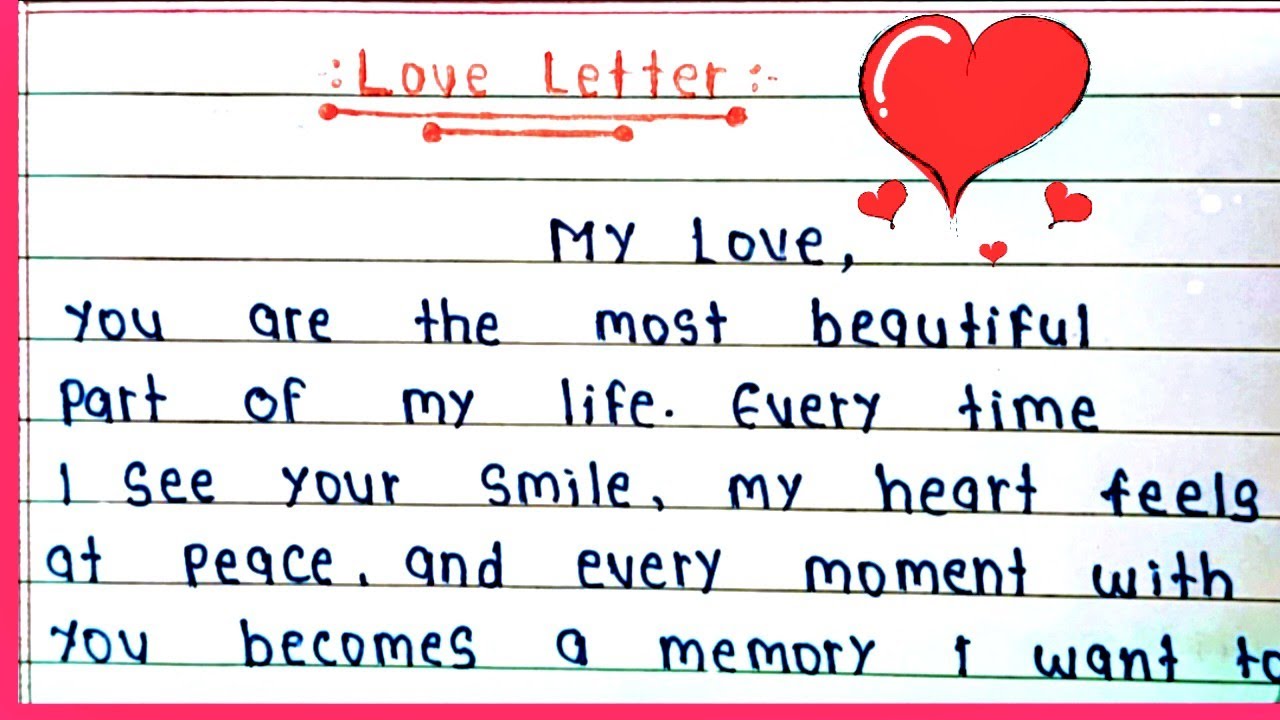 :Love Letter:-
My Love,
You are the most beautiful
Part of my life. Every time
I See your Smile, my heart feels
at Peace, and every moment with
You becomes a memory I want to